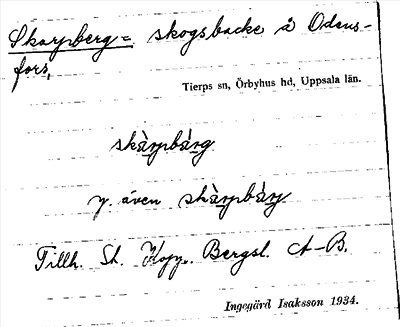 Skarpberg = skogsbacke å Odens-
fors,
Tierps sn, Örbyhus hd, Uppsala län.
skàrpbàrg
y. även skàrpbàrj
Tillh. St. Kopp. Bergsl. A-B.
Ingegärd Isaksson 1934.